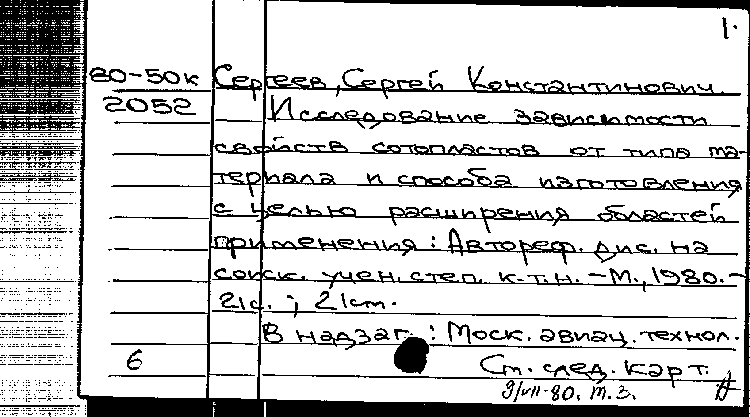 1.
80-50к Сергеев, Сергей Константинович.
2052 Исследование зависимости
свойств сотопластов от типа ма-
териала и способа изготовления
с целью расширения областей
применения : Автореф. дис. на
соиск. учен. степ. к.т.н. – М., 1980. –
21с. ; 21см.
В надзаг. : Моск. авиац. технол.
6 См. след. карт.
9/VII-80. т.з.